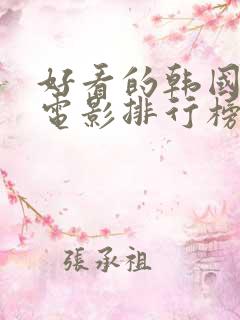 好看的韩國
電影排行榜
張承祖